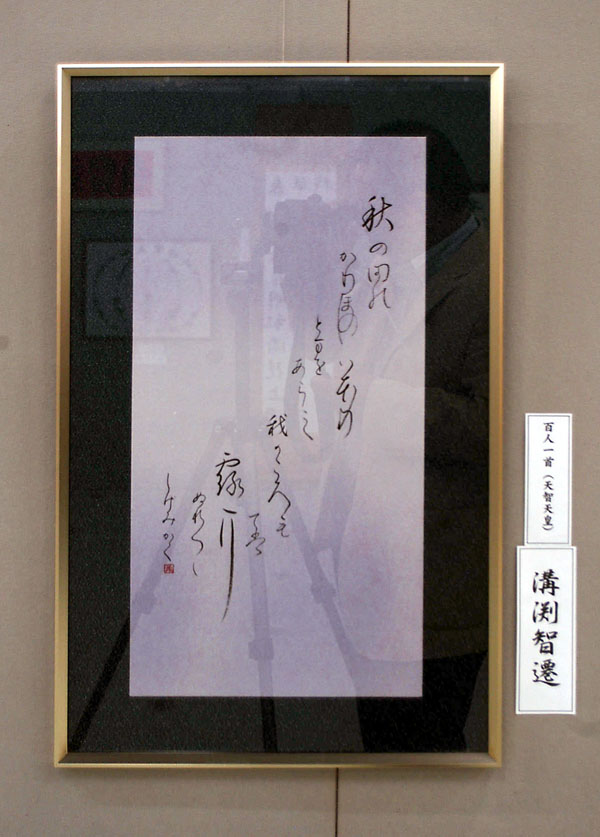 秋の田の
かりほの いほの
とまを
あらみ
我ころも
てハ
露二
ぬれつゝ
百人一首(天智天皇)
溝渕智遷